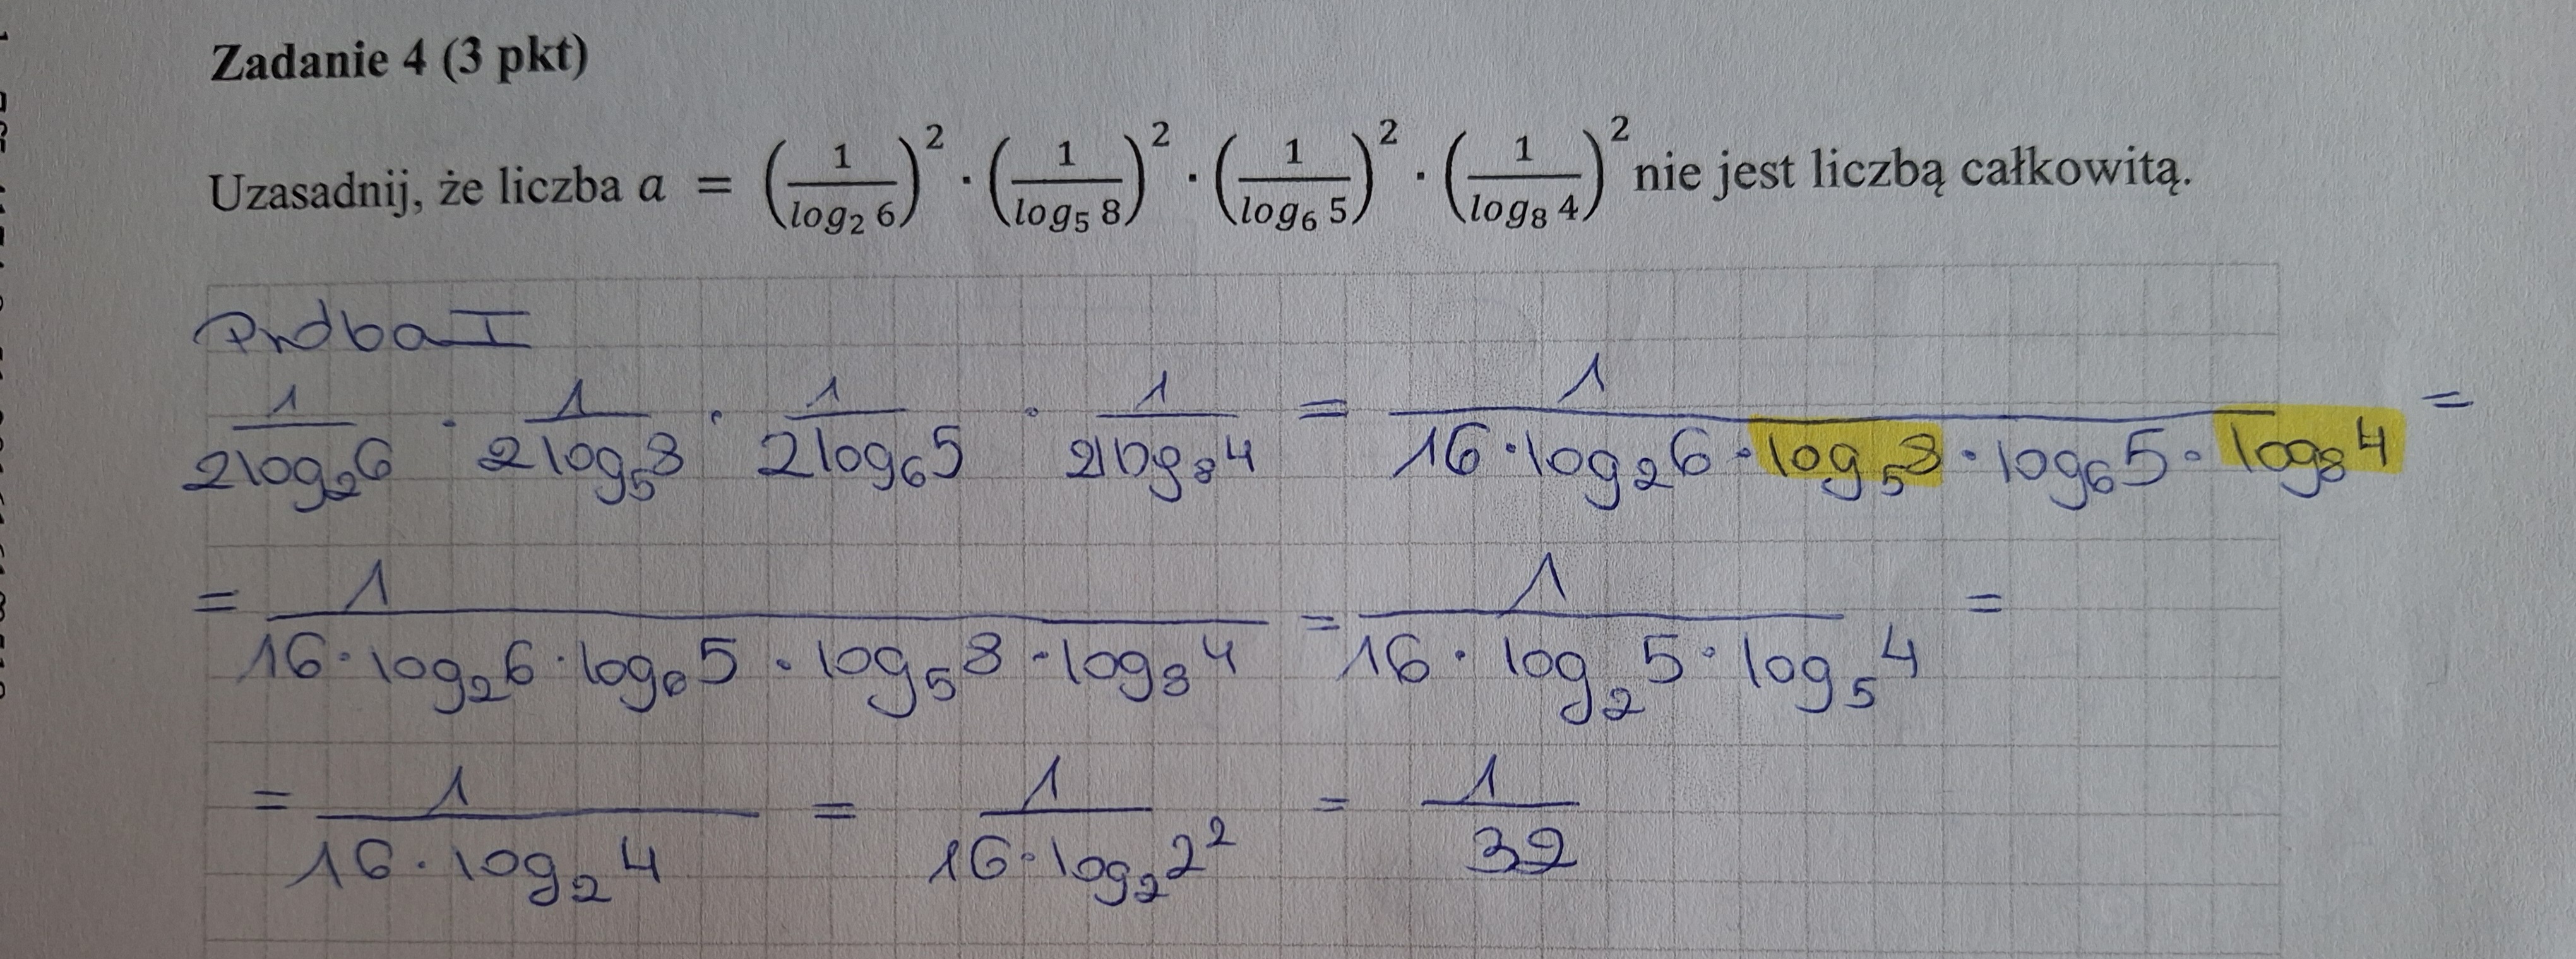 Zadanie 4 (3 pkt)
Uzasadnij, że liczba a = (1/log₂ 6)² · (1/log₅ 8)² · (1/log₆ 5)² · (1/log₈ 4)² nie jest liczbą całkowitą.
Próba I
1/(2log₂6) · 1/(2log₅8) · 1/(2log₆5) · 1/(2log₈4) = 1/(16·log₂6·log₅8·log₆5·log₈4) =
= 1/(16·log₂6·log₆5·log₅8·log₈4) = 1/(16·log₂5·log₅4) =
= 1/(16·log₂4) = 1/(16·log₂2²) = 1/32